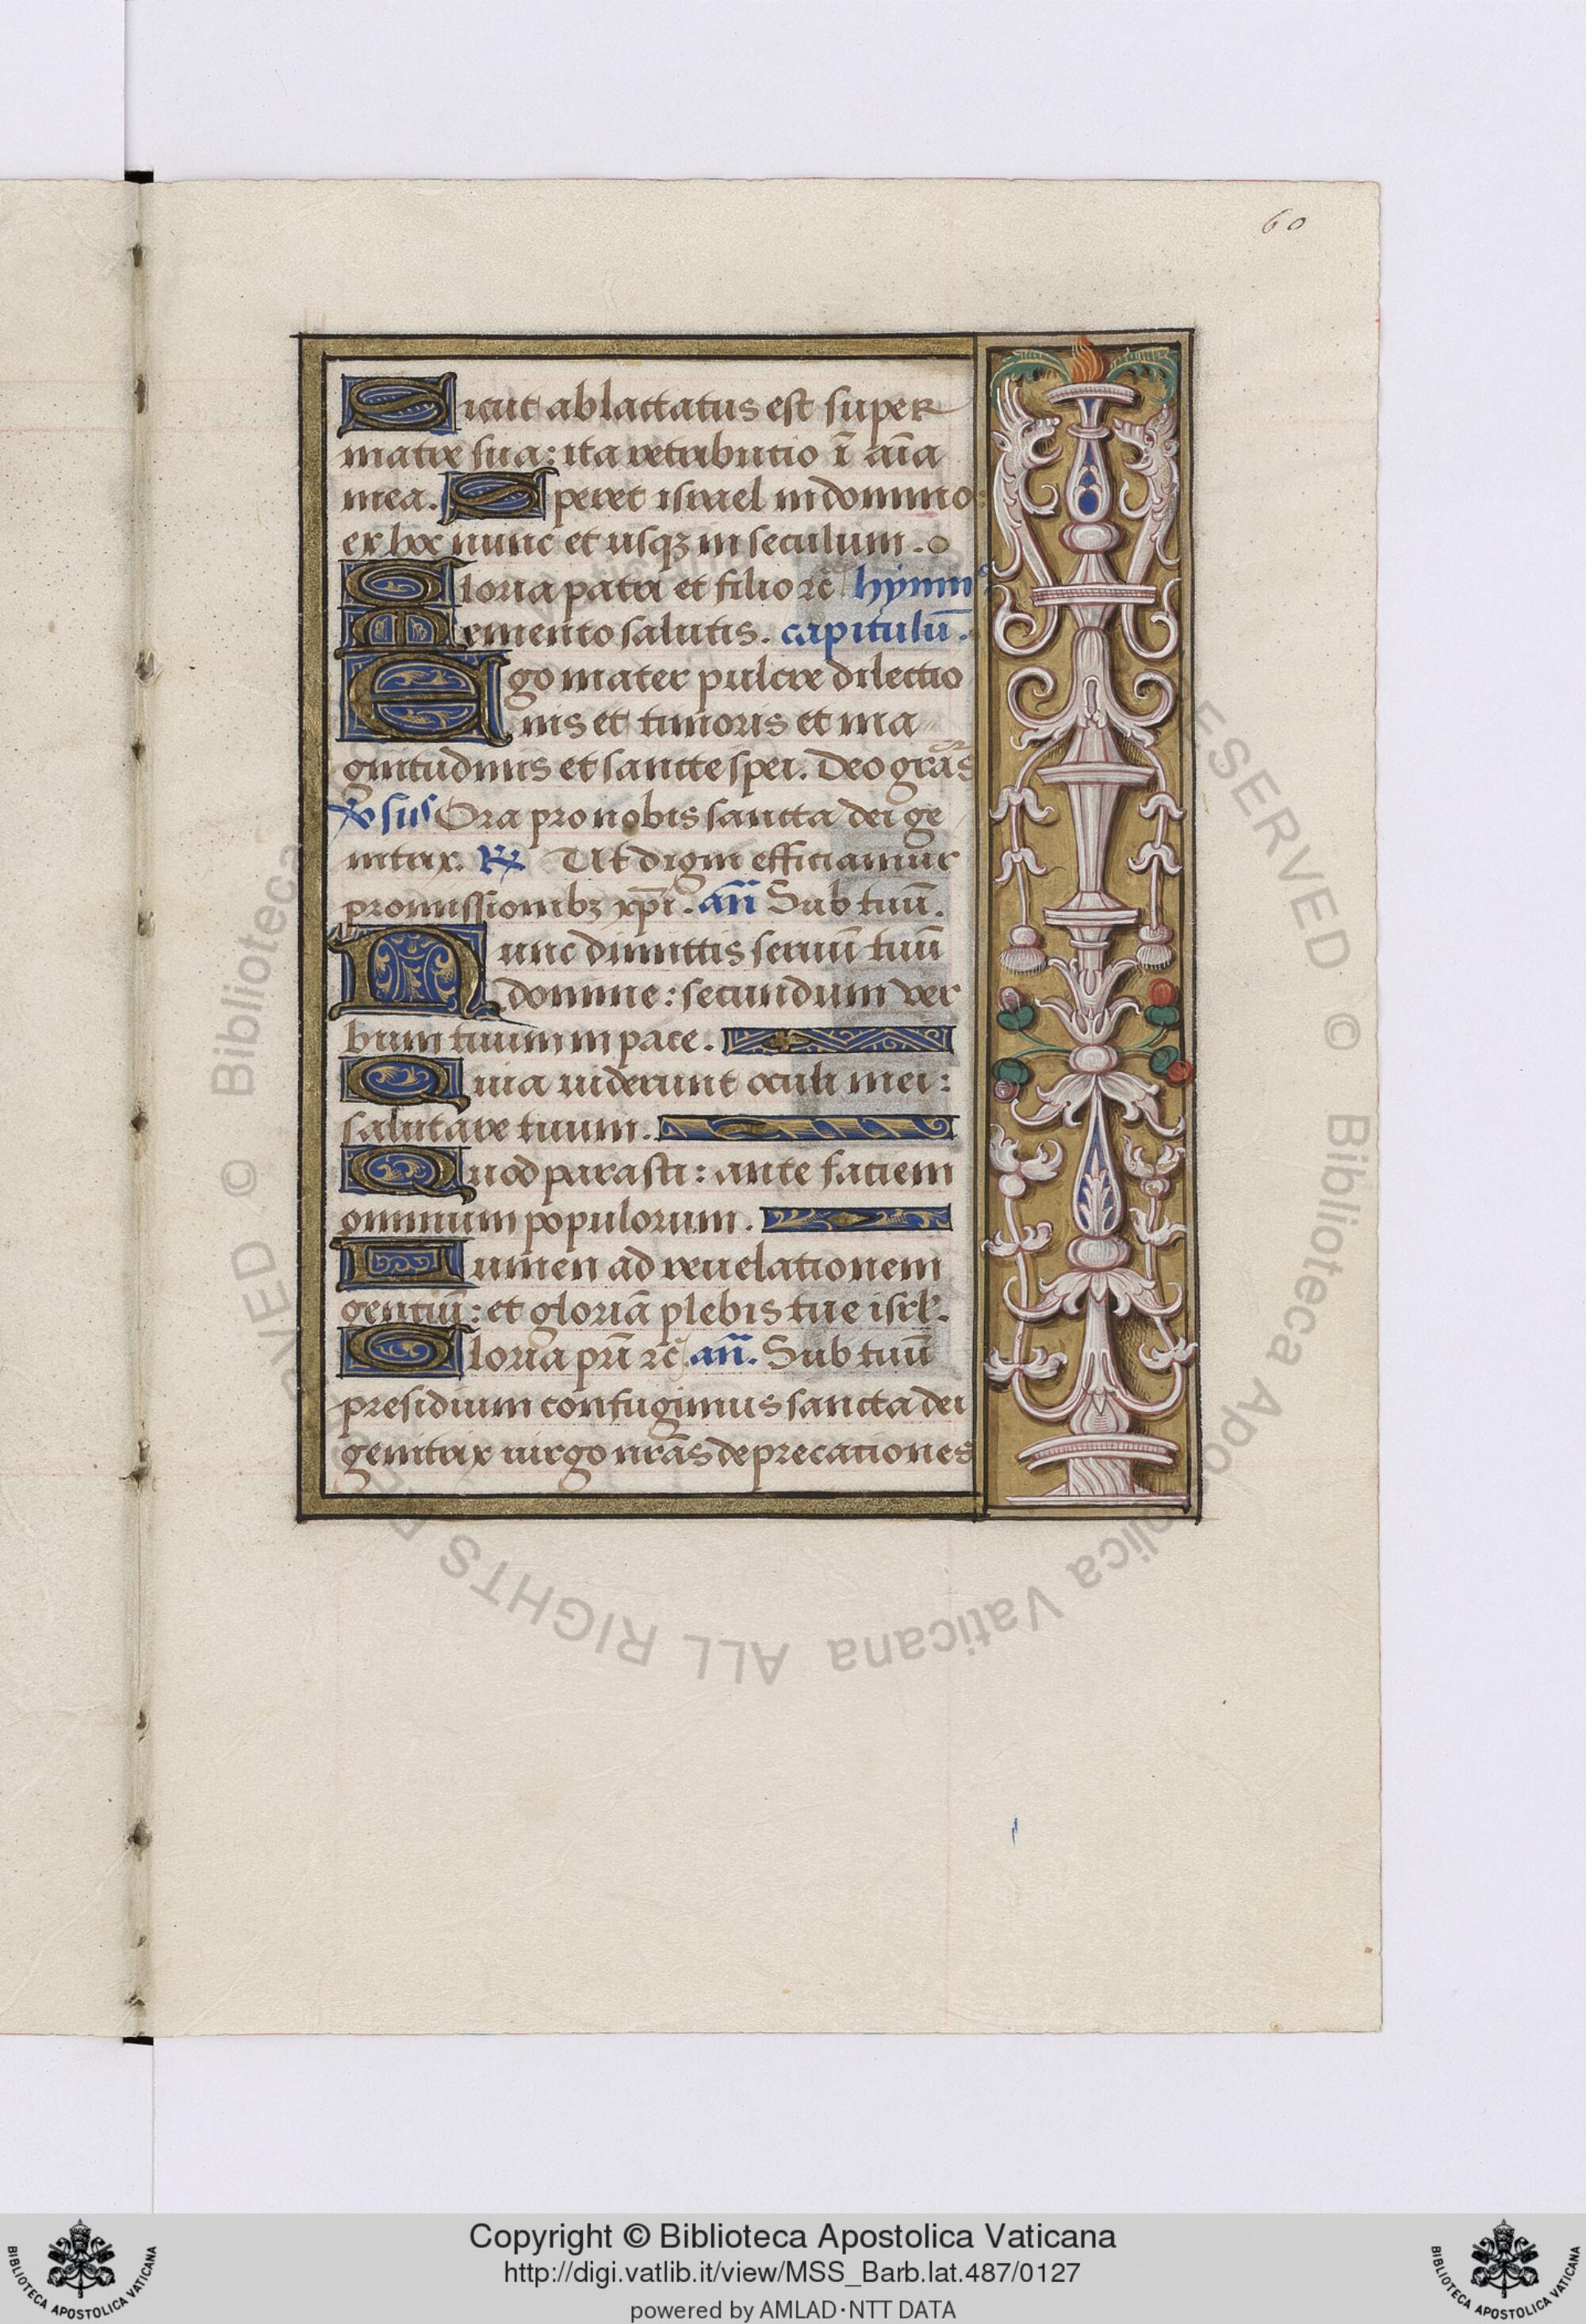 60
Sicut ablactatus est super
matre sua: ita retributio ī aīa
mea. Speret israel in domino:
ex hoc nunc et usqꝫ in seculum.
Gloria patri et filio ⁊c̄ hymnꝰ
Memento salutis. capitulū.
Ego mater pulcre dilectio
nis et timoris et ma
gnitudinis et sancte spei. Deo grās
℣sus Ora pro nobis sancta dei ge
nitrix. ℟ Ut digni efficiamur
promissionibꝫ xp̄i. an̄ Sub tuū.
Nunc dimittis seruū tuū
domine: secundum ver
bum tuum in pace.
Quia uiderunt oculi mei:
salutare tuum.
Quod parasti: ante faciem
omnium populorum.
Lumen ad reuelationem
gentiū: et gloriā plebis tue isrl.
Gloria pr̄i ⁊c̄. an̄. Sub tuū
presidium confugimus sancta dei
genitrix uirgo nrās deprecationes
© Biblioteca Apostolica Vaticana ALL RIGHTS RESERVED © Biblioteca
Copyright © Biblioteca Apostolica Vaticana
http://digi.vatlib.it/view/MSS_Barb.lat.487/0127
powered by AMLAD·NTT DATA
BIBLIOTECA APOSTOLICA VATICANA
BIBLIOTECA APOSTOLICA VATICANA